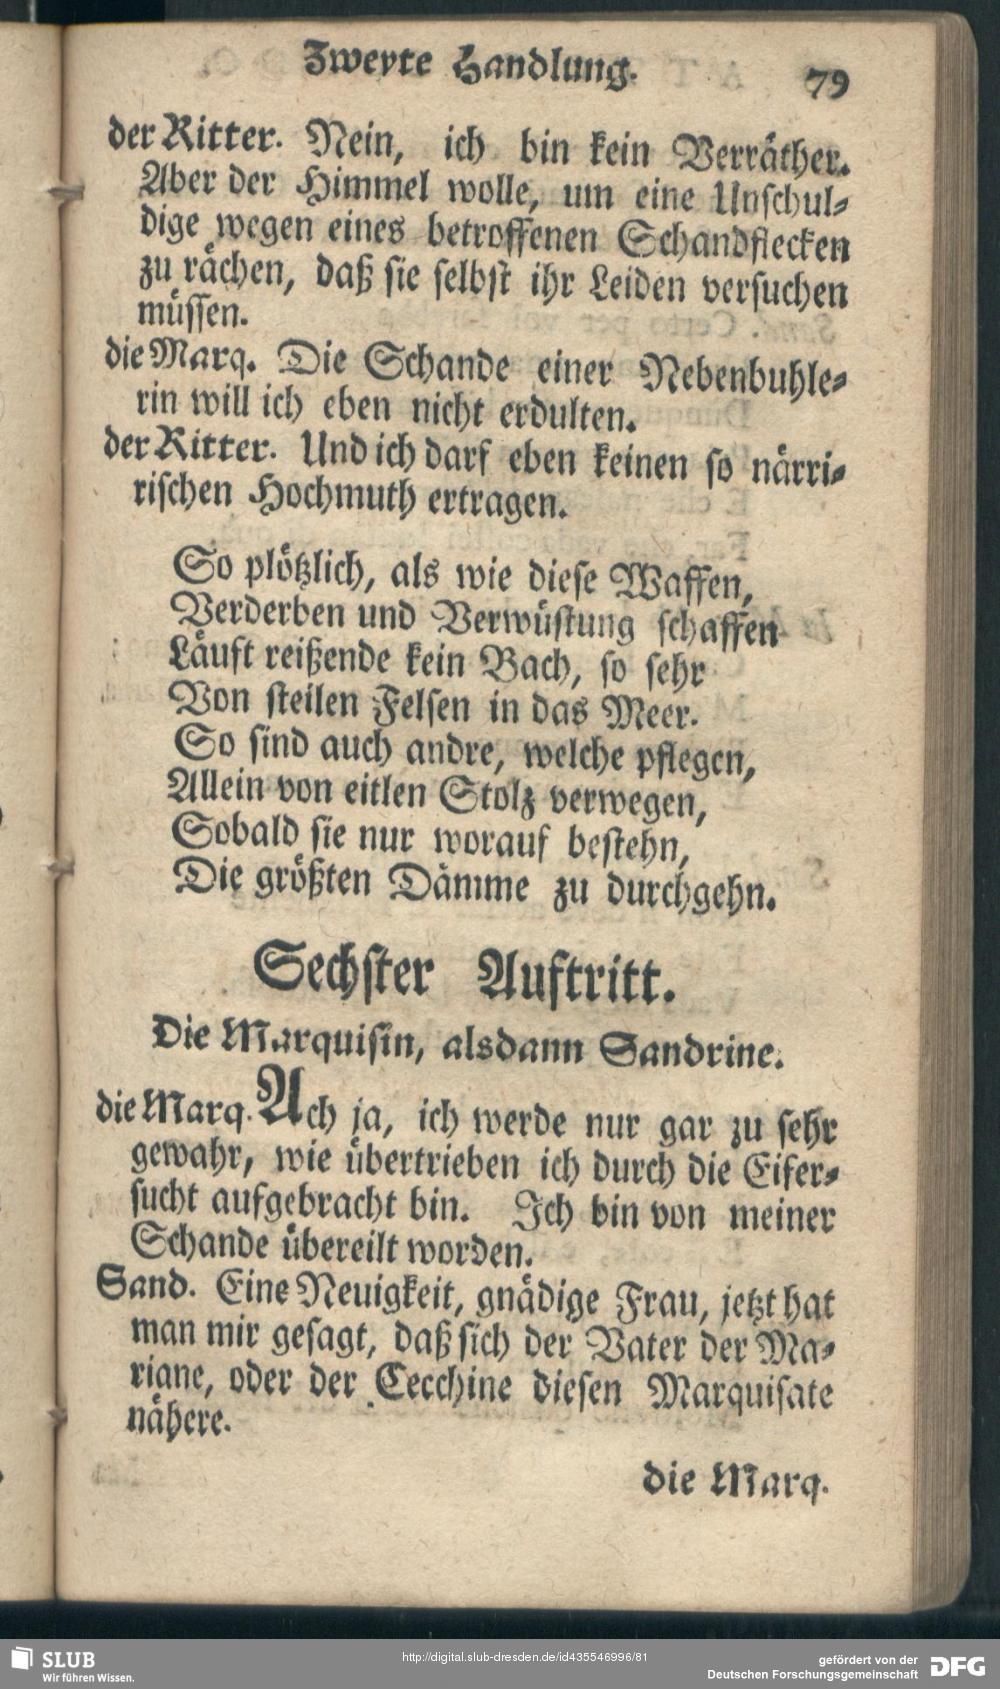 Zweyte Handlung. 79
der Ritter. Nein, ich bin kein Verräther.
Aber der Himmel wolle, um eine Unschul-
dige wegen eines betroffenen Schandflecken
zu rächen, daß sie selbst ihr Leiden versuchen
müssen.
die Marq. Die Schande einer Nebenbuhle-
rin will ich eben nicht erdulten.
der Ritter. Und ich darf eben keinen so närri-
rischen Hochmuth ertragen.
So plötzlich, als wie diese Waffen,
Verderben und Verwüstung schaffen
Läuft reißende kein Bach, so sehr
Von steilen Felsen in das Meer.
So sind auch andre, welche pflegen,
Allein von eitlen Stolz verwegen,
Sobald sie nur worauf bestehn,
Die größten Dämme zu durchgehn.
Sechster Auftritt.
Die Marquisin, alsdann Sandrine.
die Marq. Ach ja, ich werde nur gar zu sehr
gewahr, wie übertrieben ich durch die Eifer-
sucht aufgebracht bin. Ich bin von meiner
Schande übereilt worden.
Sand. Eine Neuigkeit, gnädige Frau, jetzt hat
man mir gesagt, daß sich der Vater der Ma-
riane, oder der Cecchine diesen Marquisate
nähere.
die Marq.
SLUB
Wir führen Wissen.
http://digital.slub-dresden.de/id435546996/81
gefördert von der
Deutschen Forschungsgemeinschaft
DFG